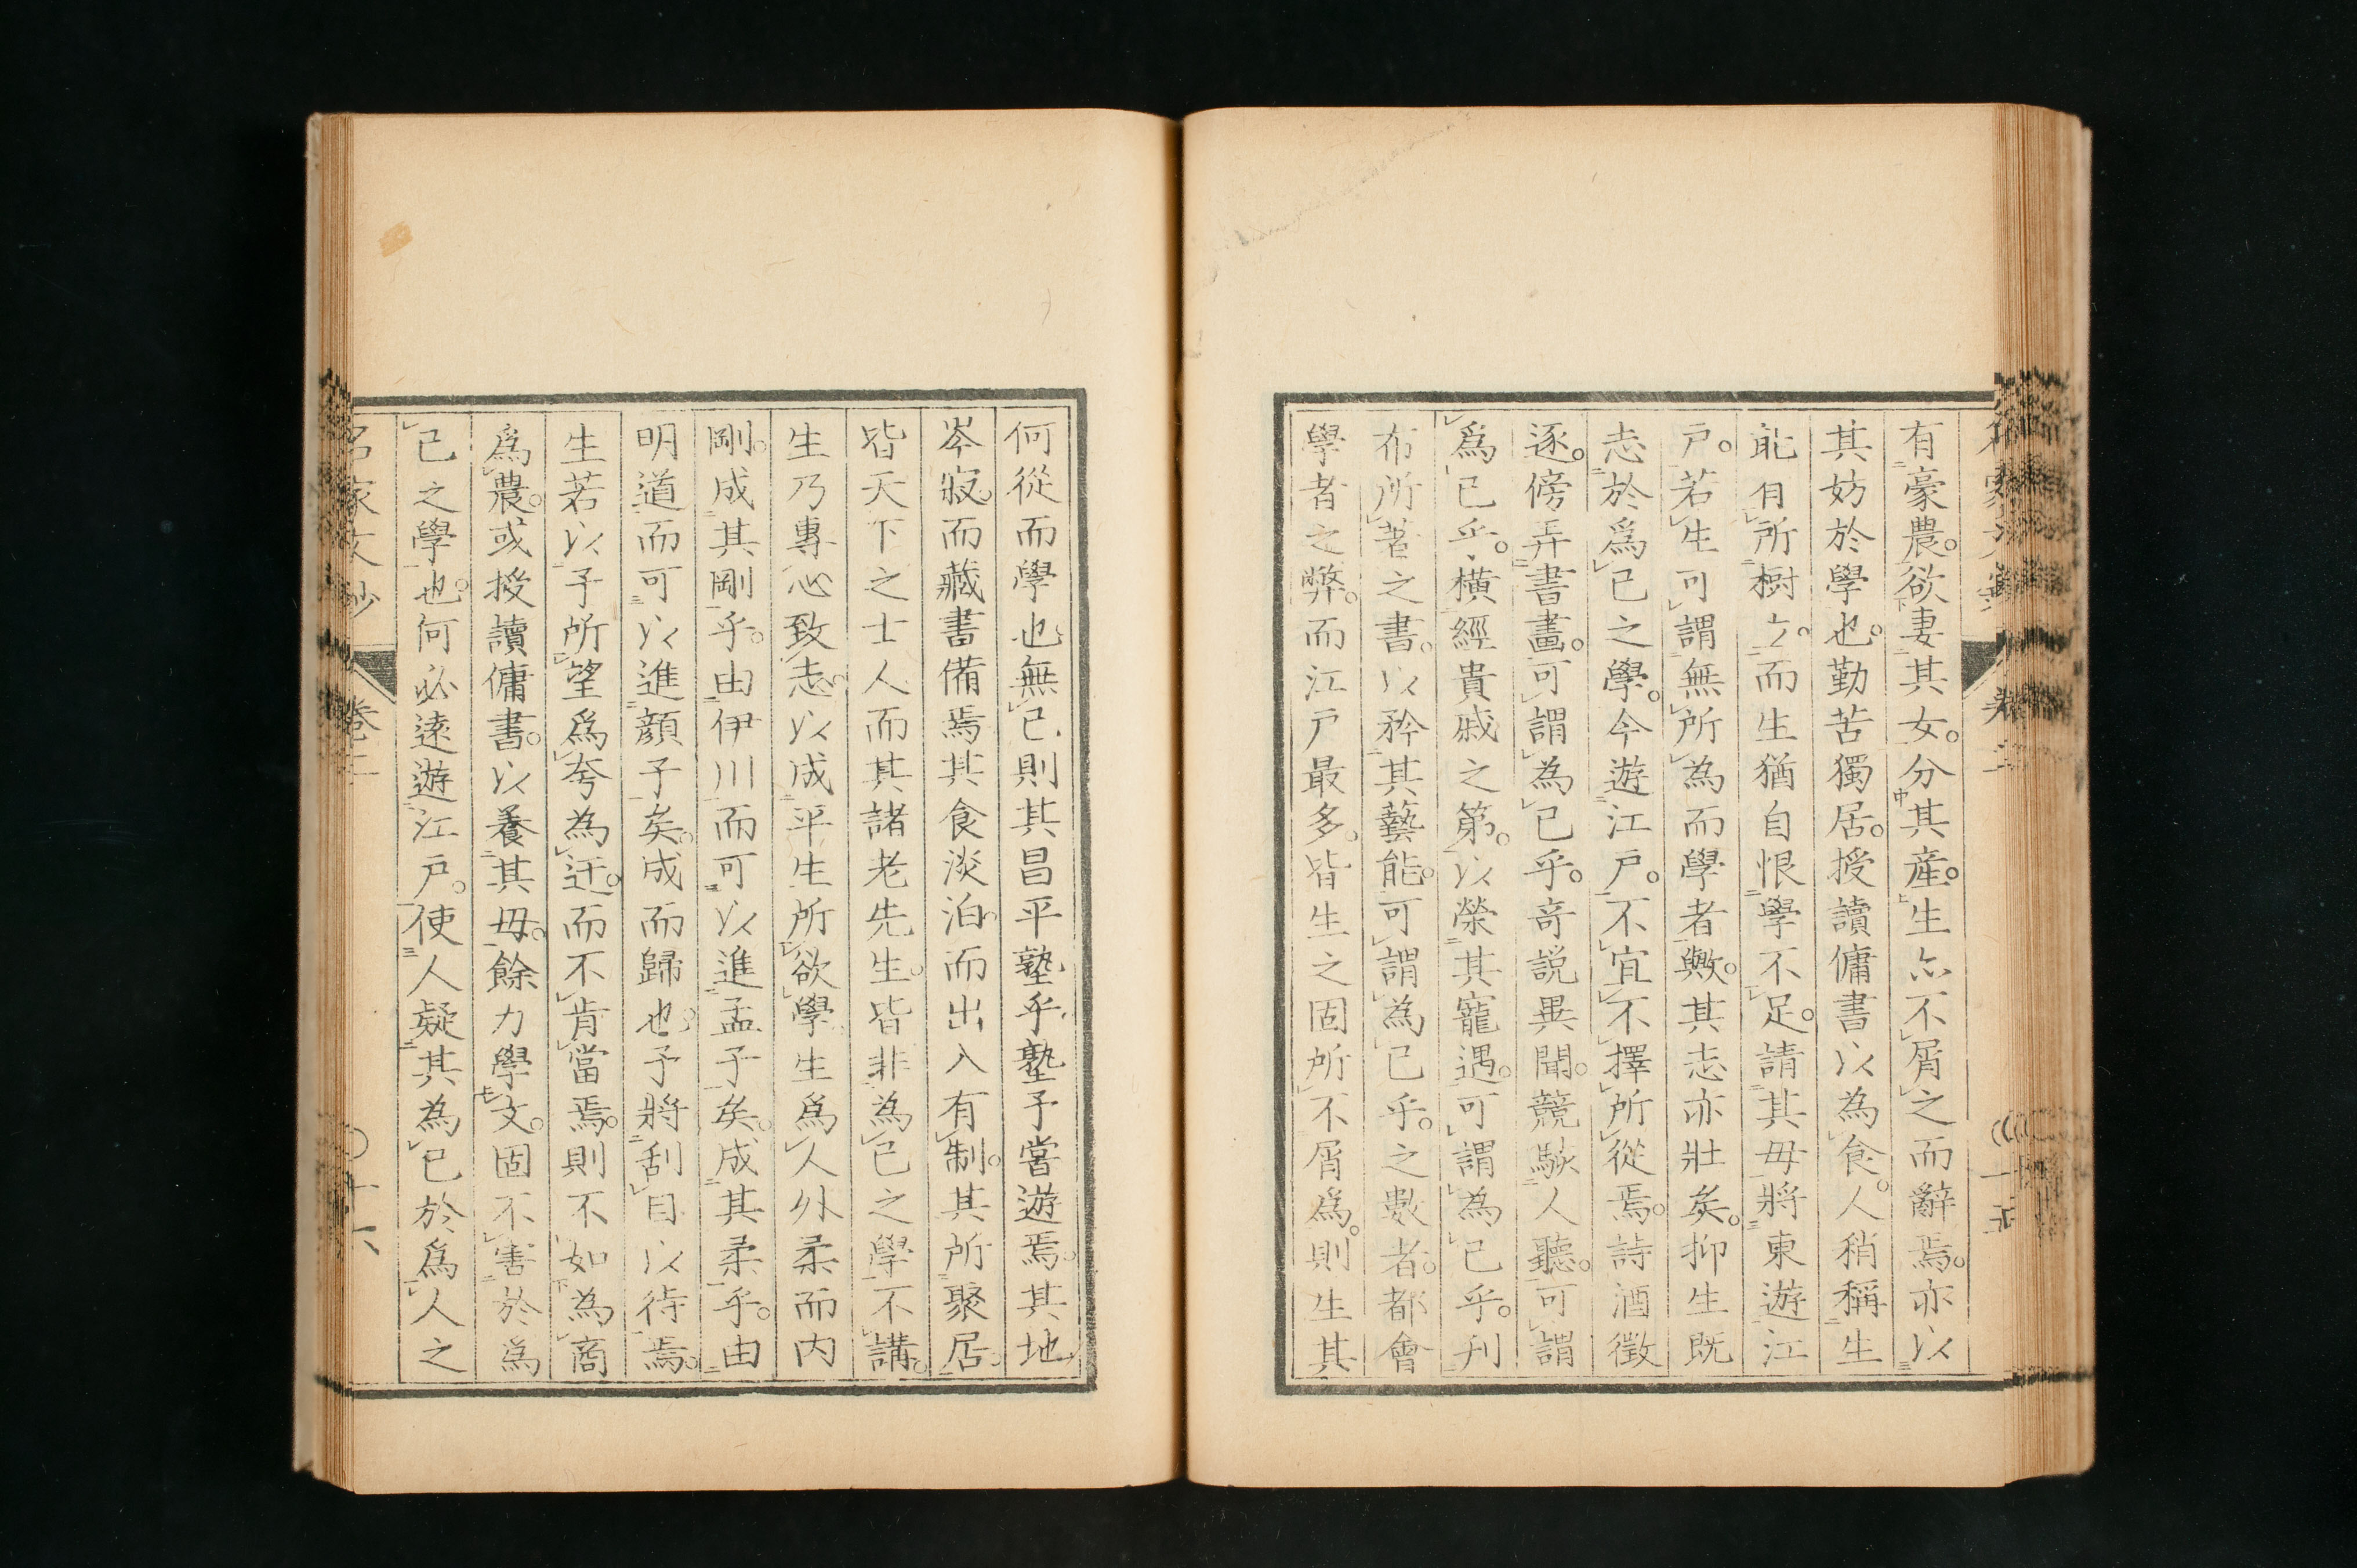 有豪農。欲妻其女。分其產。生亦不屑之而辭焉。亦以
其妨於學也。勤苦獨居。授讀傭書以為食。人稍稱生
能有所樹立。而生猶自恨學不足。請其毋將東遊江
戶。若生可謂無所為而學者歟。其志亦壯矣。抑生既
志於爲己之學。今遊江戶。不宜不擇所從焉。詩酒徵
逐。傍弄書畫。可謂為己乎。奇説異聞。競駭人聽。可謂
爲己乎。橫經貴戚之第。以榮其寵遇。可謂為己乎。刊
布所著之書。以矜其藝能。可謂為己乎。之數者。都會
學者之弊。而江戶最多。皆生之固所不屑爲。則生其
何從而學也。無已則其昌平塾乎。塾予嘗遊焉。其地
岑寂。而藏書備焉。其食淡泊。而出入有制。其所聚居。
皆天下之士人而其諸老先生。皆非為己之學不講。
生乃專心致志。以成平生所欲學。生爲人外柔而內
剛。成其剛乎。由伊川而可以進孟子矣。成其柔乎。由
明道而可以進顔子矣。成而歸也。予將刮目以待焉。
生若以予所望爲夸為迂。而不肯當焉。則不如為商
爲農。或授讀傭書。以養其毋。餘力學文。固不害於為
己之學也。何必遠遊江戶。使人疑其為己於爲人之
名家文抄 卷二 十六